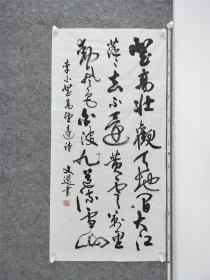 登高壮观天地间大江
茫茫去不还黄云万里
动风色白波九道流雪山
李白登高望远诗
文选书